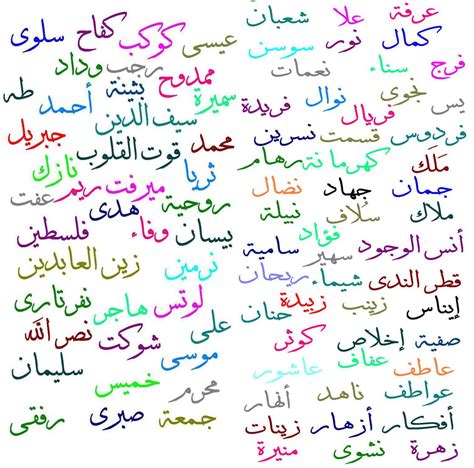 عرفة علا شعبان
كمال نور سوسن
فرج سناء نعمات
يس نجوى نوال فريدة
فردوس فريال نسرين
مَلَك كهرمانة قسمت رهام
جمان جهاد نضال
ملاك سلاف نبيلة
أنس الوجود فؤاد سامية
قطر الندى شيماء سهير ريحان
إيناس زينب زبيدة حنان
صفية إخلاص كوثر
عاطف عفاف عاشور
عواطف ناهد أنهار
أفكار أزهار زينات
زهرة نشوى منيرة
عيسى كوكب كفاح سلوى
ممدوح رجب وداد
سميرة بثينة أحمد طه
محمد سيف الدين جبريل
ثريا قوت القلوب نازك
روحية ميرفت ريم عفت
بيسان وفاء هدى فلسطين
نرمين زين العابدين
لوتس هاجر نفرتارى
على شوكت نصر الله
موسى سليمان
محرم خميس
جمعة صبرى رفقى